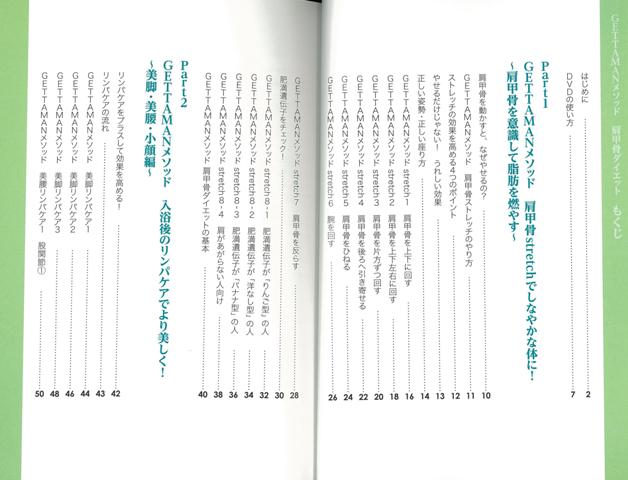 GETTAMANメソッド 肩甲骨ダイエット もくじ
はじめに 2
DVDの使い方 7
Part1
GETTAMANメソッド 肩甲骨stretchでしなやかな体に!
~肩甲骨を意識して脂肪を燃やす~
肩甲骨を動かすと、なぜやせるの? 10
GETTAMANメソッド 肩甲骨ストレッチのやり方 11
ストレッチの効果を高める4つのポイント 12
やせるだけじゃない! うれしい効果 13
正しい姿勢・正しい座り方 14
GETTAMANメソッド stretch1 肩甲骨を上下に回す 16
GETTAMANメソッド stretch2 肩甲骨を上下左右に回す 18
GETTAMANメソッド stretch3 肩甲骨を片方ずつ回す 20
GETTAMANメソッド stretch4 肩甲骨を後ろへ引き寄せる 22
GETTAMANメソッド stretch5 肩甲骨をひねる 24
GETTAMANメソッド stretch6 腕を回す 26
GETTAMANメソッド stretch7 肩甲骨を反らす 28
肥満遺伝子をチェック! 30
GETTAMANメソッド stretch8-1 肥満遺伝子が「りんご型」の人 32
GETTAMANメソッド stretch8-2 肥満遺伝子が「洋なし型」の人 34
GETTAMANメソッド stretch8-3 肥満遺伝子が「バナナ型」の人 36
GETTAMANメソッド stretch8-4 肩があがらない人向け 38
GETTAMANメソッド 肩甲骨ダイエットの基本 40
Part2
GETTAMANメソッド 入浴後のリンパケアでより美しく!
~美脚・美腰・小顔編~
リンパケアをプラスして効果を高める! 42
リンパケアの流れ 43
GETTAMANメソッド 美脚リンパケア1 44
GETTAMANメソッド 美脚リンパケア2 46
GETTAMANメソッド 美脚リンパケア3 48
GETTAMANメソッド 美腰リンパケア1 股関節① 50